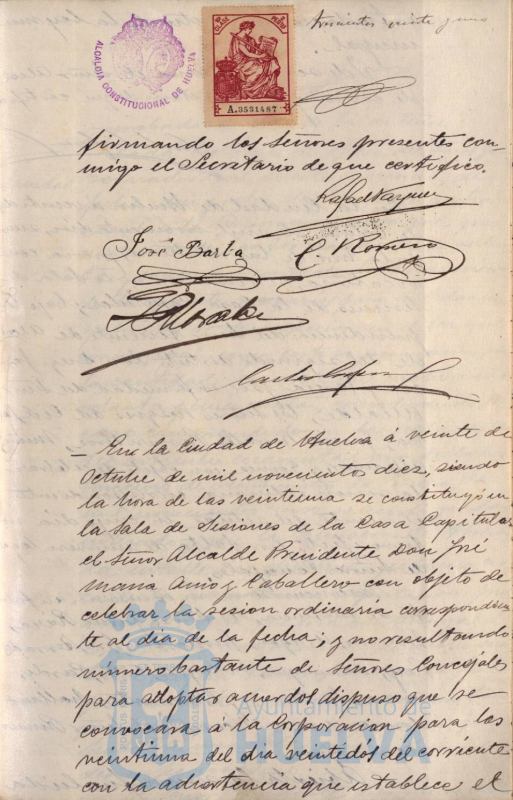 trescientos veinte y uno
ALCALDIA CONSTITUCIONAL DE HUELVA
A.3531487
firmando los Señores presentes con-
migo el Secretario de que certifico.
Rafael Vazquez
José Barba
C. Romero
En la Ciudad de Huelva á veinte de
Octubre de mil novecientos diez, siendo
la hora de las veintiuna se constituyó en
la Sala de Sesiones de la Casa Capitular
el Señor Alcalde Presidente Don José
Maria y Caballero con objeto de
celebrar la sesion ordinaria correspondien-
te al dia de la fecha; y no resultando
número bastante de Señores Concejales
para adoptar acuerdos dispuso que se
convocara á la Corporacion para las
veintiuna del dia veintidos del corriente
con la advertencia que establece el
Ayuntamiento de
HUELVA